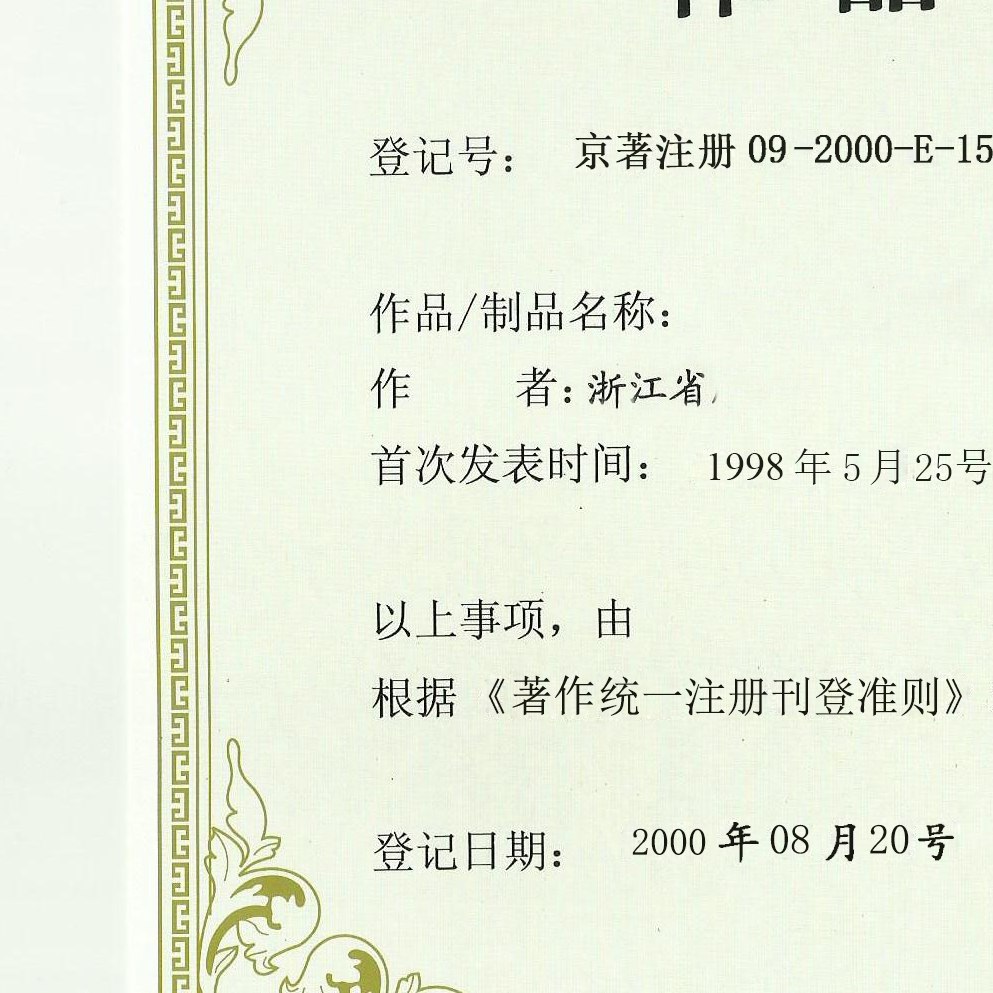 登记号： 京著注册 09-2000-E-15
作品/制品名称：
作 者：浙江省
首次发表时间： 1998 年 5 月 25号
以上事项，由
根据《著作统一注册刊登准则》
登记日期： 2000 年 08 月 20 号